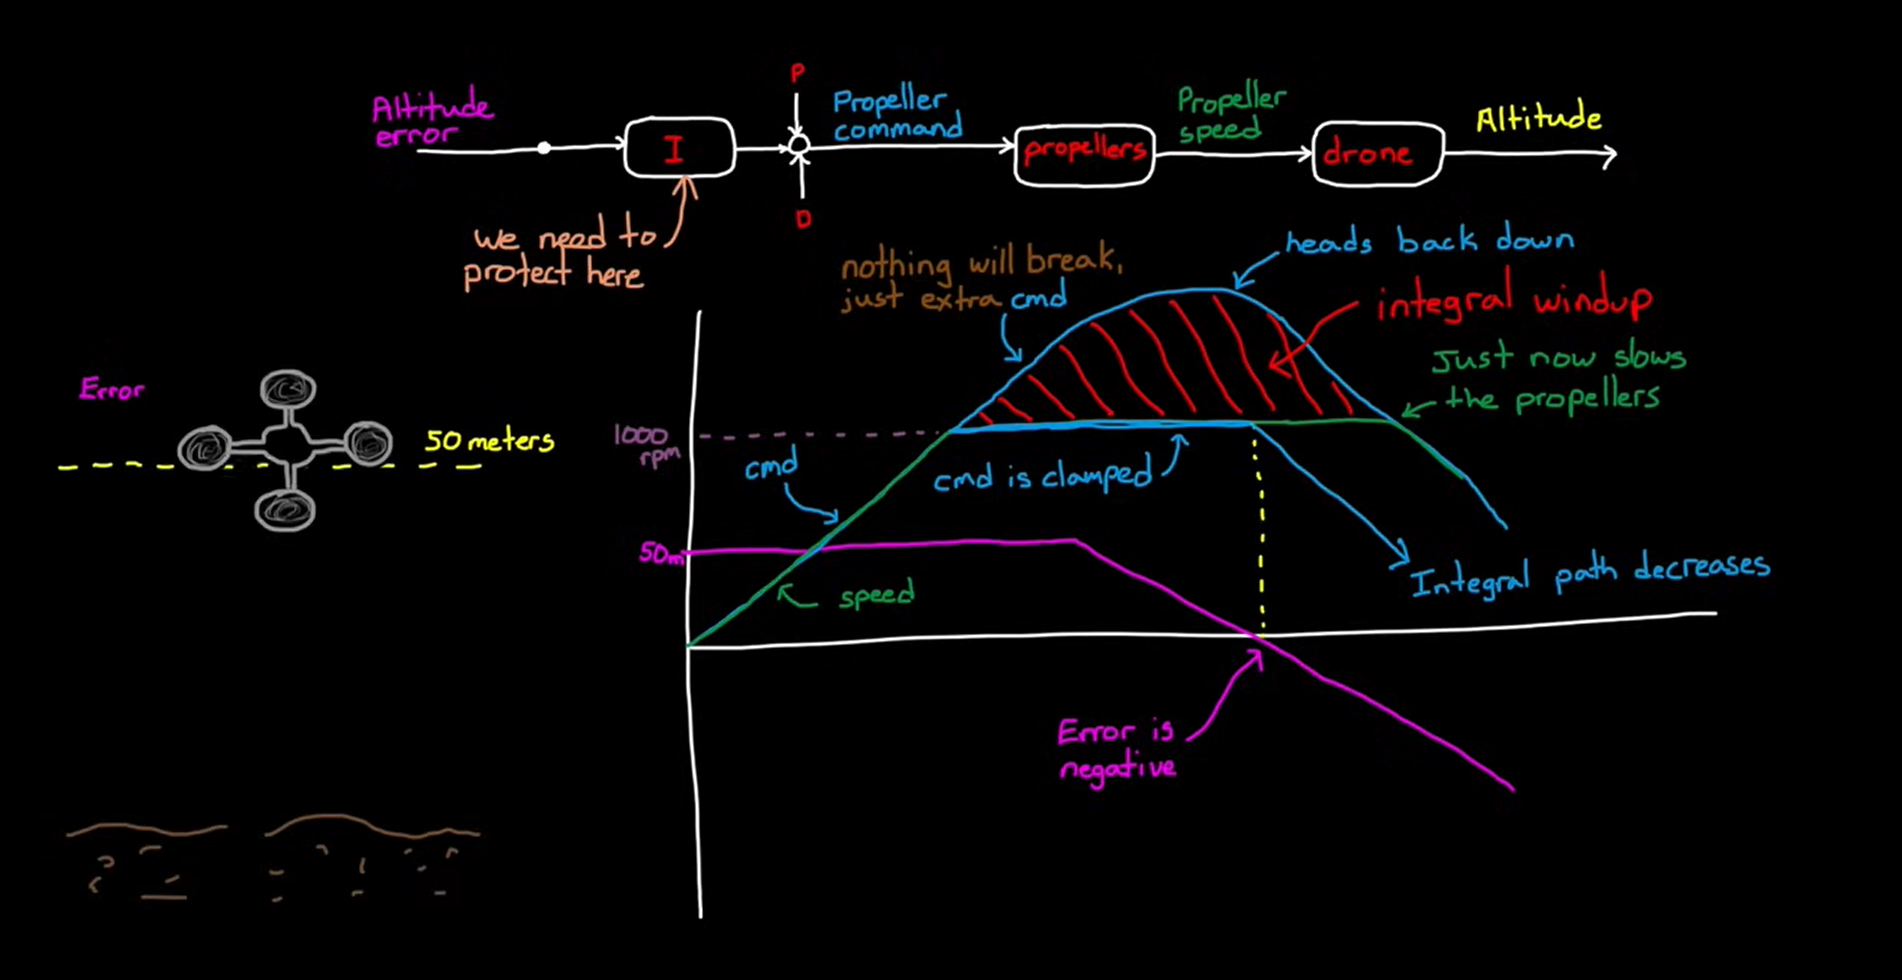 P
Altitude
error
I
Propeller
command
propellers
Propeller
speed
drone
Altitude
D
we need to
protect here
nothing will break,
just extra cmd
heads back down
integral windup
Just now slows
the propellers
Error
50 meters
1000
rpm
cmd
cmd is clamped
50m
speed
Integral path decreases
Error is
negative